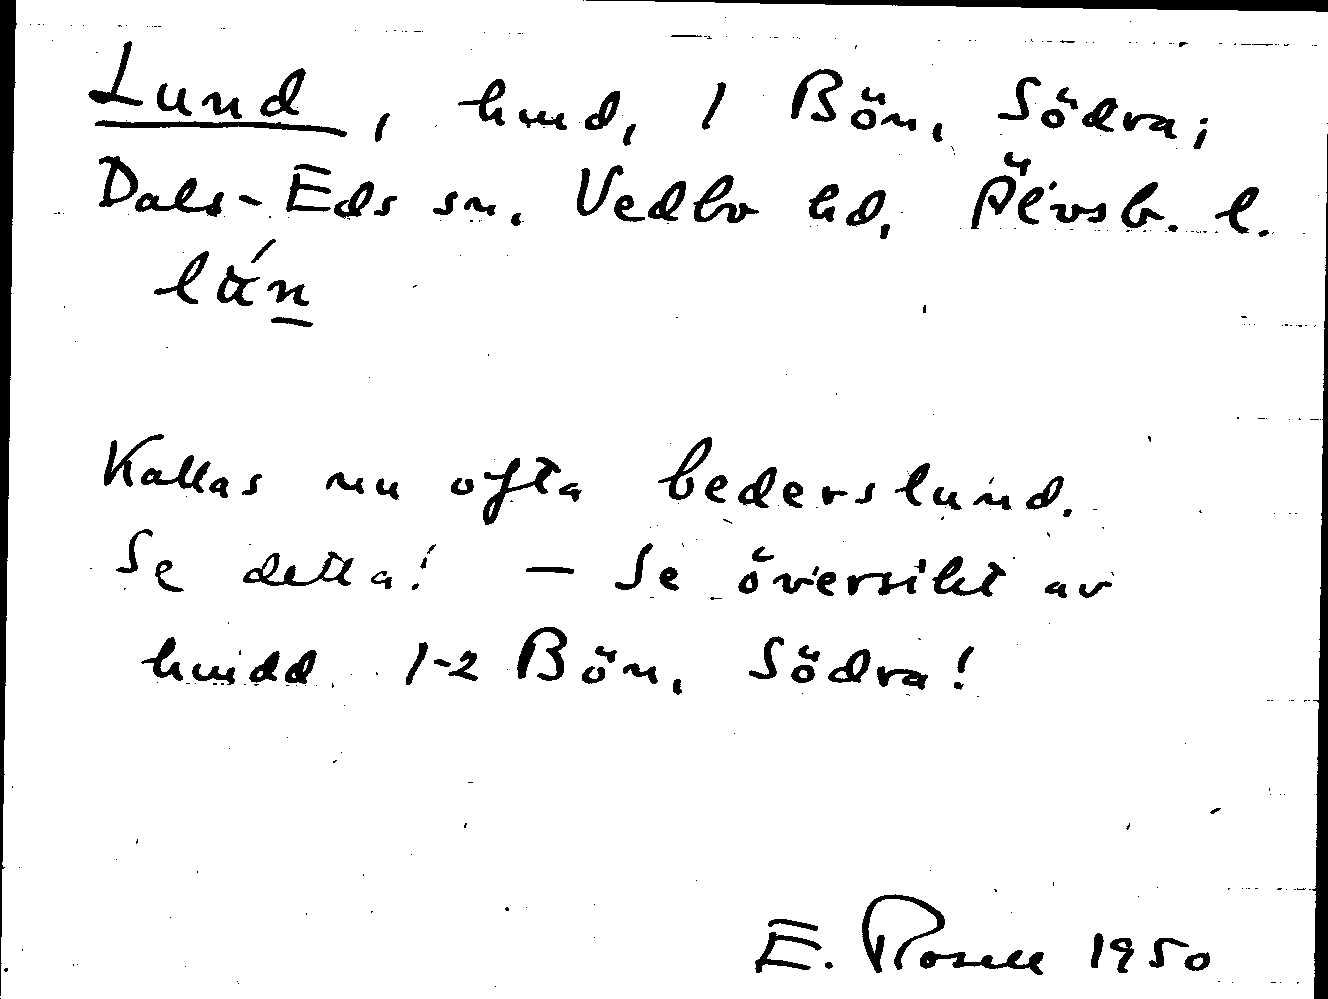 Lund, hmd, 1 Bön, Södra;
Dals-Eds sn. Vedbo hd, Älvsb. l.
lä́n
Kallas nu ofta bederslund.
Se detta! — Se översikt av
hmdd 1-2 Bön, Södra!
E. Rosell 1950